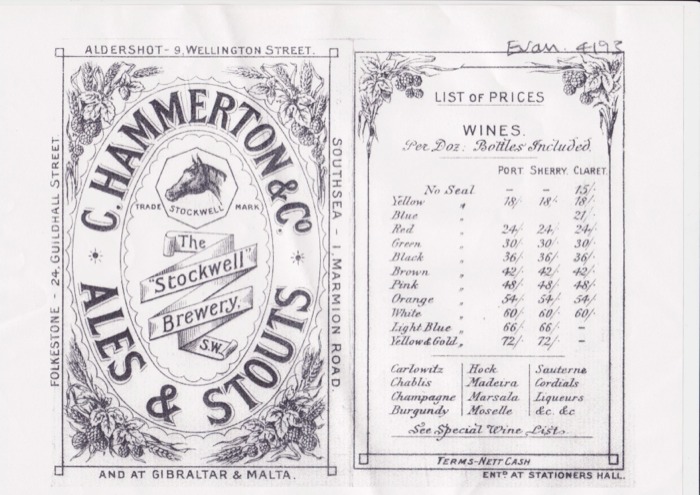 ALDERSHOT - 9, WELLINGTON STREET.
FOLKESTONE - 24, GUILDHALL STREET.
SOUTHSEA - 1, MARMION ROAD.
C. HAMMERTON & Co
TRADE STOCKWELL MARK
The
"Stockwell"
Brewery.
S.W.
ALES & STOUTS
AND AT GIBRALTAR & MALTA.
Evan. 4193
LIST OF PRICES
WINES.
Per Doz: Bottles Included.
PORT SHERRY. CLARET.
No Seal - - 15/-
Yellow " 18/- 18/- 18/-
Blue " 21/-
Red " 24/- 24/- 24/-
Green " 30/- 30/- 30/-
Black " 36/- 36/- 36/-
Brown " 42/- 42/- 42/-
Pink " 48/- 48/- 48/-
Orange " 54/- 54/- 54/-
White " 60/- 60/- 60/-
Light Blue " 66/- 66/- -
Yellow & Gold " 72/- 72/- -
Carlowitz Hock Sauterne
Chablis Madeira Cordials
Champagne Marsala Liqueurs
Burgundy Moselle &c. &c
See Special Wine List.
TERMS - NETT CASH
ENTD AT STATIONERS HALL.